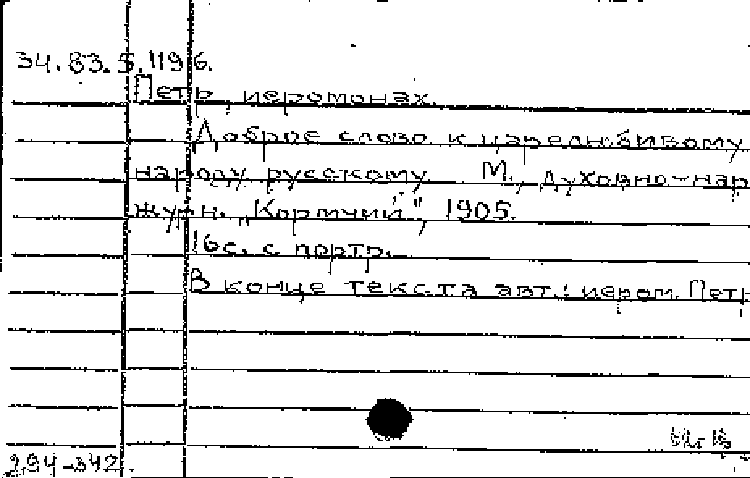 34.83.5.1196.
Петр, иеромонах.
Доброе слово к царелюбивому
народу русскому. М., духовно-нар
журн. "Кормчий", 1905.
16 с. с портр.
В конце текста авт.: иером. Петр
294-342.